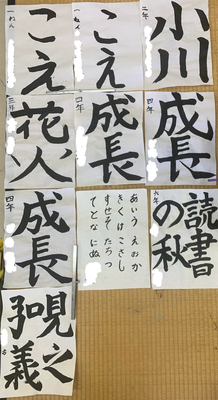 一ねん
こえ
一ねん
こえ
二年
小川
三年
花火
四年
成長
四年
成長
四年
成長
あいう えおか
きくけこさし
すせそたちつ
てとなにぬ
六年
読書
の秋